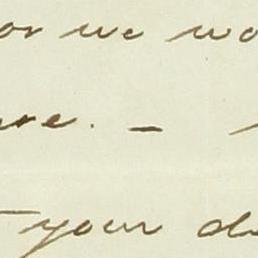 or we wo
re. —
your d